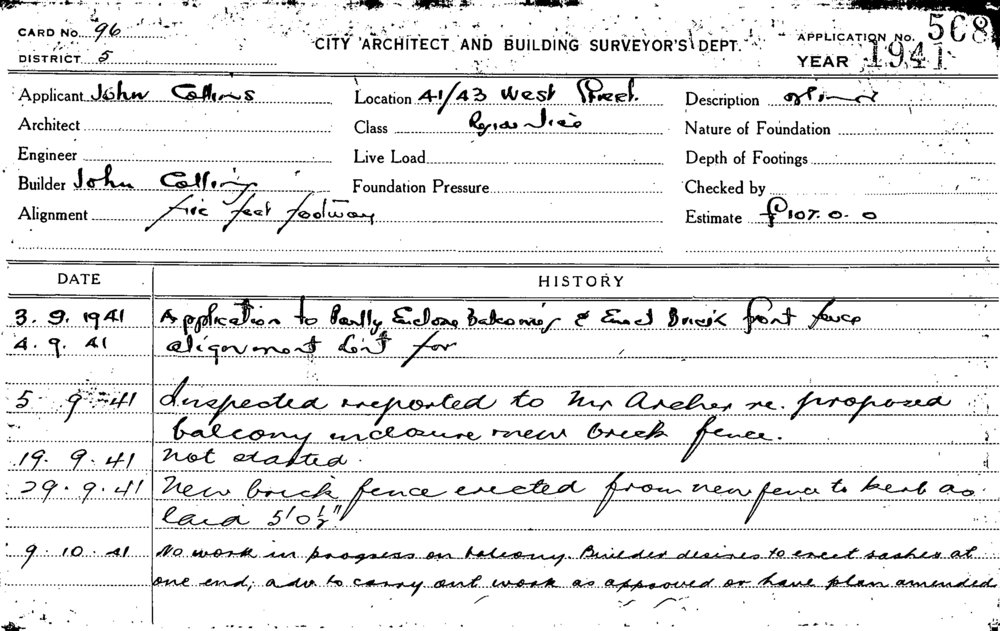 CARD No. 96
DISTRICT 5
CITY ARCHITECT AND BUILDING SURVEYOR'S DEPT.
APPLICATION No. 568
YEAR 1941
Applicant John Collins
Architect
Engineer
Builder John Collins
Alignment five feet footway
Location 41/43 West Street.
Class
Live Load
Foundation Pressure
Description
Nature of Foundation
Depth of Footings
Checked by
Estimate £107. 0. 0
DATE HISTORY
3. 9. 1941 Application to Partly Enclose Balconies & Erect Brick front fence
4. 9. 41 alignment for
5 9 41 Inspected & reported to Mr Archer re. proposed
balcony inclosure & new brick fence.
19. 9. 41 Not started.
29. 9. 41 New brick fence erected from new fence to kerb as
laid 5' 0½"
9. 10. 41 No work in progress on balcony. Builder desires to erect sashes at
one end, adv. to carry out work as approved or have plan amended